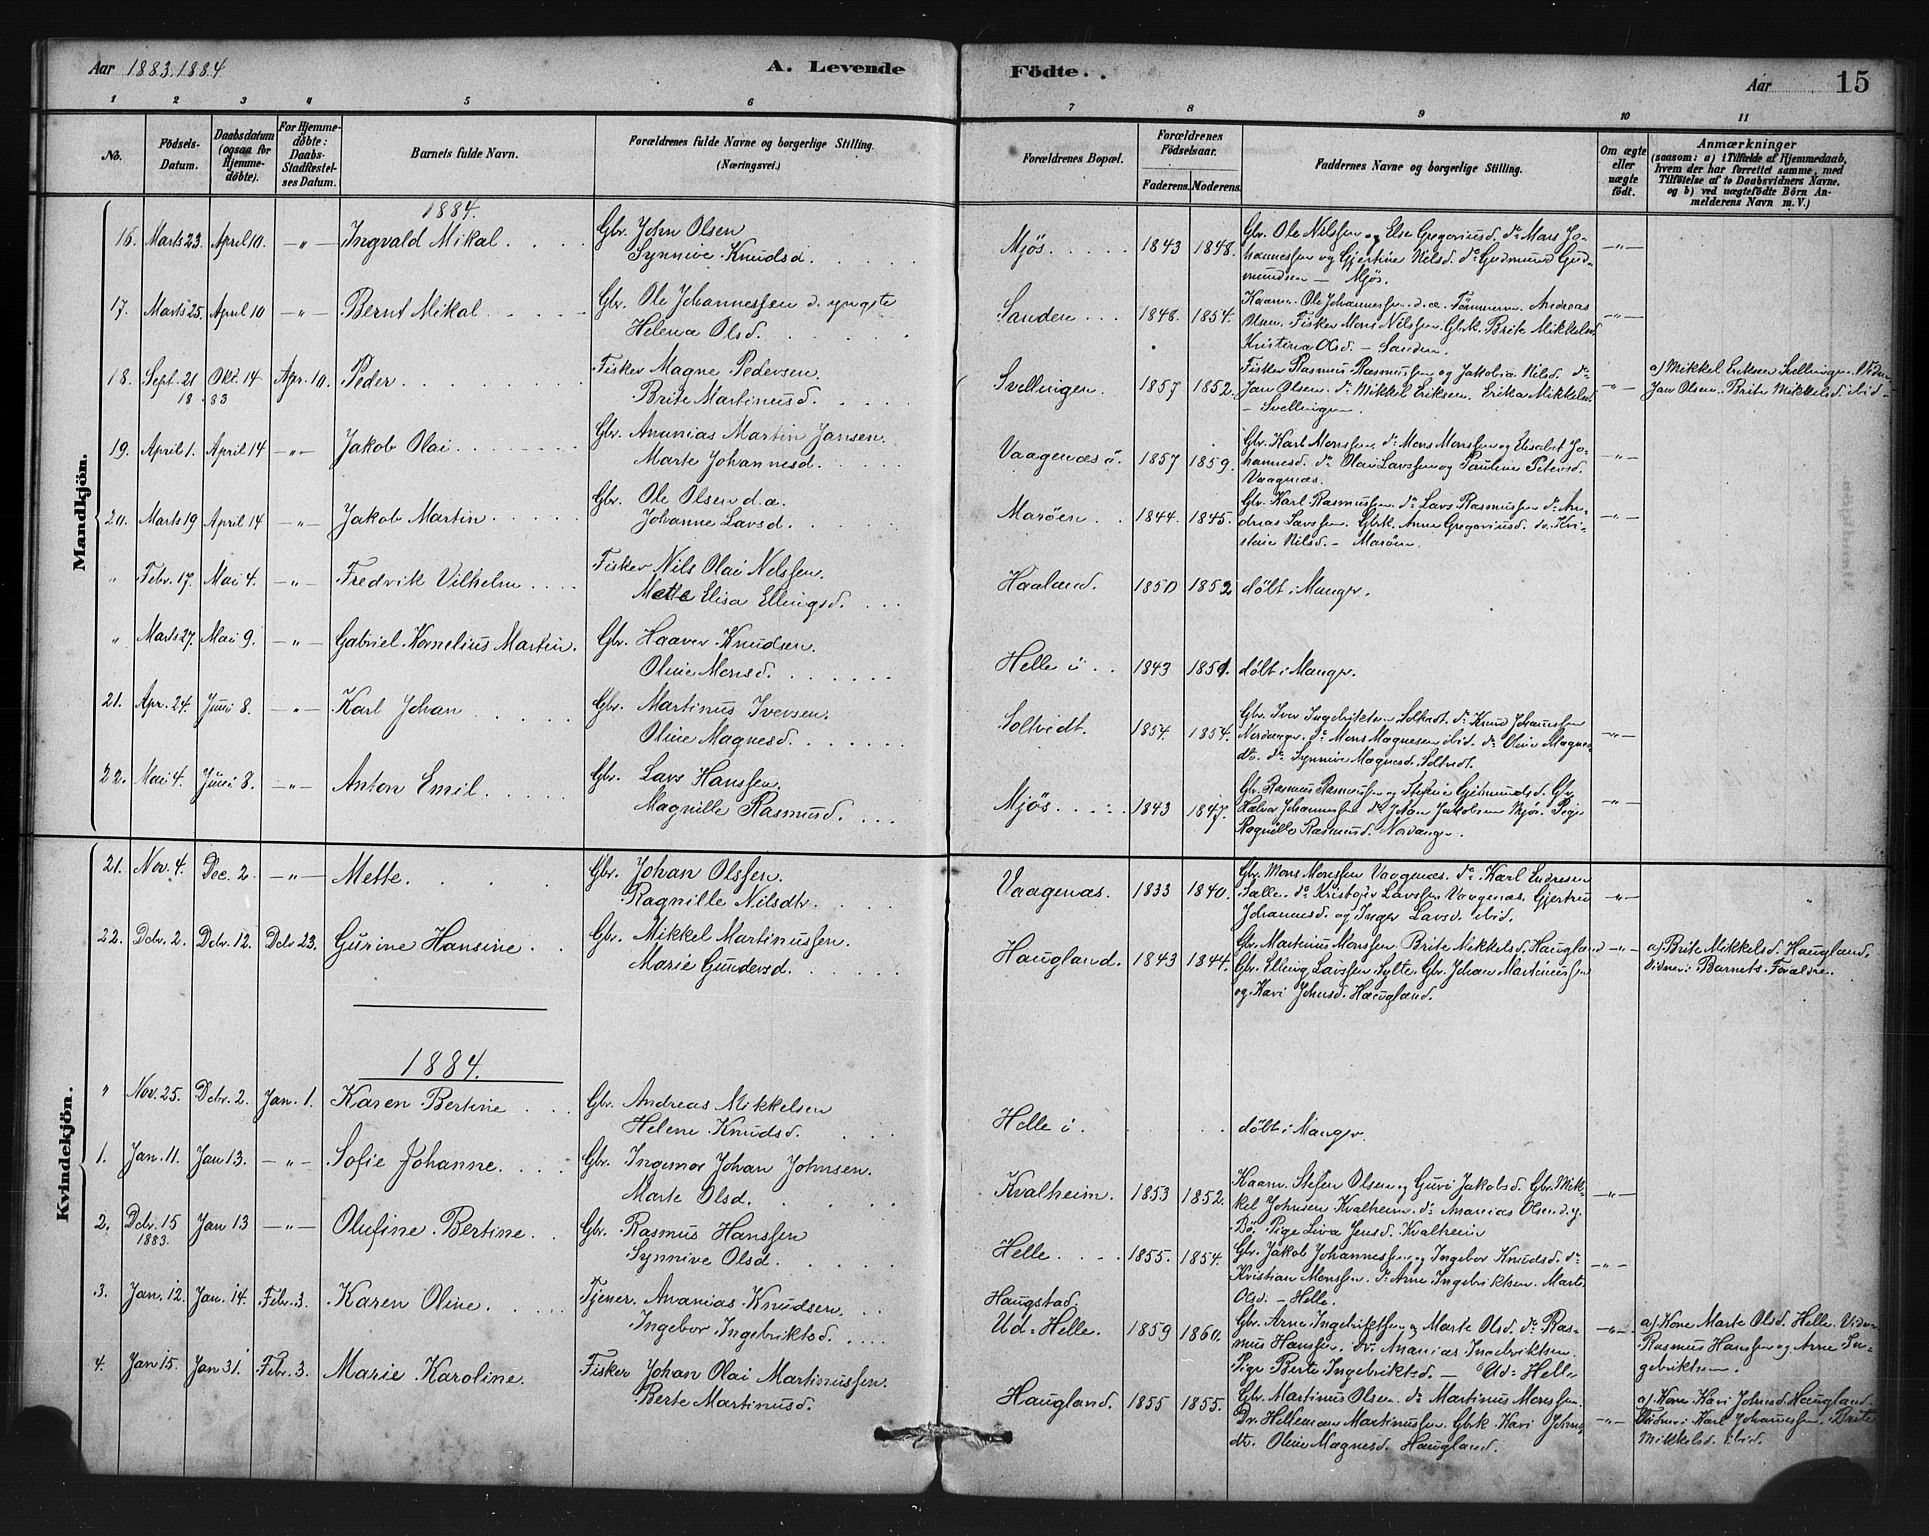 Aar 1883.1884. A. Levende Födte. Aar 15
1 2 3 4 5 6 7 8 9 10 11
No.
Födsels-Datum.
Daabsdatum (ogsaa for Hjemme-döbte).
For Hjemme-döbte: Daabs-Stadfæstel-ses Datum.
Barnets fulde Navn.
Forældrenes fulde Navne og borgerlige Stilling. (Næringsvei.)
Forældrenes Bopæl.
Forældrenes Födselsaar.
Faderens. Moderens.
Faddernes Navne og borgerlige Stilling.
Om ægte eller uægte födt.
Anmærkninger
(saasom: a) i Tilfælde af Hjemmedaab,
hvem der har forrettet samme, med
Tilföielse af to Daabsvidners Navne,
og b) ved uægtefödte Börn An-
melderens Navn m.V.)
Mandkjön.
1884.
16. Marts 23. April 10. —"— Ingvald Mikal. Gbr. John Olsen
Synnive Knudsd. Mjös. 1843 1848. Gbr. Ole Nilssen og Else Gregoriusd. do Mons Jo-
hannessen og Gjertine Nilsd. do Gudmund Gud-
mundsen — Mjös. —"—
17. Marts 25. April 10 —"— Bernt Mikal Gbr. Ole Johannessen d. yngste
Helena Olsd. Sanden 1848. 1854. Kaarm. Ole Johannessen d.æ. Andreas
Olsen. Fisker Mons Nilssen. Gbrk. Brite Mikkelsd.
Kristina Olsd. — Sanden. —"—
18. Sept. 21 Okt. 14 Apr. 10. Peder Fisker Magne Pedersen
1883
Brite Martinusd. Svellingen. 1857 1852. Fisker Rasmus Rasmussen og Jakobia Nilsd. do
Jan Olsen. do Mikkel Eriksen. Erika Mikkelsd.
— Svellingen. —"— a) Mikkel Eriksen Svellingen. Vidn.
Jan Olsen. Brite Mikkelsd. ibid.
19. April 1. April 14 —"— Jakob Olai Gbr. Ananias Martin Jansen
Marte Johannesd. Vaagenæs ö. 1857 1859. Gbr. Karl Monssen. do Mons Monssen og Elisabet Jo-
hannesd. do Olai Larssen og Pauline Petersd.
Vaagenæs. —"—
20. Marts 19 April 14 —"— Jakob Martin Gbr. Ole Olsen d.æ.
Johanne Larsd. Maröen 1844. 1845. Gbr. Karl Rasmussen. do Lars Rasmussen do An-
dreas Larssen. Gbrk. Anne Gregoriusd. do Kri-
stine Nilsd. — Maröen. —"—
" Febr. 17. Mai 4. —"— Fredrik Vilhelm Fisker Nils Olai Nilssen.
Mette Elisa Ellingsd. Haaland. 1850 1852 döbt i Manger.
" Marts 27. Mai 9. —"— Gabriel Kornelius Martin. Gbr. Haaver Knudsen.
Oline Monsd. Helle i 1843 1851. döbt i Manger.
21. Apr. 24. Juni 8. —"— Karl Johan Gbr. Martinus Iversen.
Oline Magnesd. Soltvedt. 1854 1854. Gbr. Iver Ingebriktsen Soltvedt. do Knud Johannessen
Nordanger. do Mons Magnesen ibid. do Oline Magnes-
dtr. do Synnive Magnesd. Soltvedt. —"—
22. Mai 4. Juni 8. —"— Anton Emil. Gbr. Lars Hanssen.
Magnille Rasmusd. Mjös. 1843 1847. Gbr. Rasmus Rasmussen og Gudmundsd. Gbr.
Halvor Johannessen do Johan Jakobsen Mjös. Pige
Ragnille Rasmusd. Nordanger. —"—
Kvindekjön.
21. Nov. 4. Dec. 2. —"— Mette. Gbr. Johan Olssen.
Ragnille Nilsdtr. Vaagenæs. 1833 1840. Gbr. Mons Monssen Vaagenæs. do Karl Endresen
Sælle. do Kristofer Larssen Vaagenæs. Gjertrud
Johannesd. og Inger Larsd. ibid. —"—
22. Dcbr. 2. Dcbr. 12. Dcbr. 23. Gurine Hansine Gbr. Mikkel Martinussen.
Marie Gundersd. Haugland. 1843 1844. Gbr. Martinus Monssen. Brite Mikkelsd. Haugland
Gbr. Elling Larssen Sylte. Gbr. Johan Martinussen
og Kari Johnsd. Haugland. —"— a) Brite Mikkelsd. Haugland.
Vidner: Barnets Forældre.
1884.
" Nov. 25. Dcbr. 2. Jan. 1. Karen Bertine Gbr. Andreas Mikkelsen
Helene Knudsd. Helle i döbt i Manger.
1. Jan. 11. Jan 13. —"— Sofie Johanne. Gbr. Ingemor Johan Johnsen.
Marte Olsd. Kvalheim. 1853 1852. Kaarm. Stefen Olsen og Guri Jakobsd. Gbr. Mik-
kel Johnsen Kvalheim. do Ananias Olsen d.y.
Bö. Pige Liva Jensd. Kvalheim —"—
2. Dcbr. 15 Jan 13 —"— Olufine Bertine. Gbr. Rasmus Hanssen
1883.
Synnive Olsd. Helle 1855. 1854. Gbr. Jakob Johannessen og Ingebor Knudsd. do
Kristian Monssen. do Arne Ingebriktsen. Marte
Olsd. — Helle. —"—
3. Jan. 12. Jan. 14. Febr. 3. Karen Oline. Tjener. Ananias Knudsen.
Ingebor Ingebriktsd. Haugstad.
Ud-Helle. 1859 1860. Gbr. Arne Ingebriktsen og Marte Olsd. do Ras-
mus Hanssen. do Ananias Ingebriktsen.
Pige Berte Ingebriktsd. — Ud-Helle —"— a) Kone Marte Olsd. Helle. Vidner
Rasmus Hanssen og Arne In-
gebriktsen.
4. Jan 15. Jan 31. Febr. 3. Marie Karoline. Fisker Johan Olai Martinussen.
Berte Martinusd. Haugland. 1855 1855. Gbr. Martinus Olsen. do Martinus Monssen.
Dr. Martinussen. Gbrk. Kari Johns-
dtr. Oline Magnesd. Haugland. —"— a) Kone Kari Johnsd. Haugland.
Vidner: Karl Johannessen. Brite
Mikkelsd. ibid.